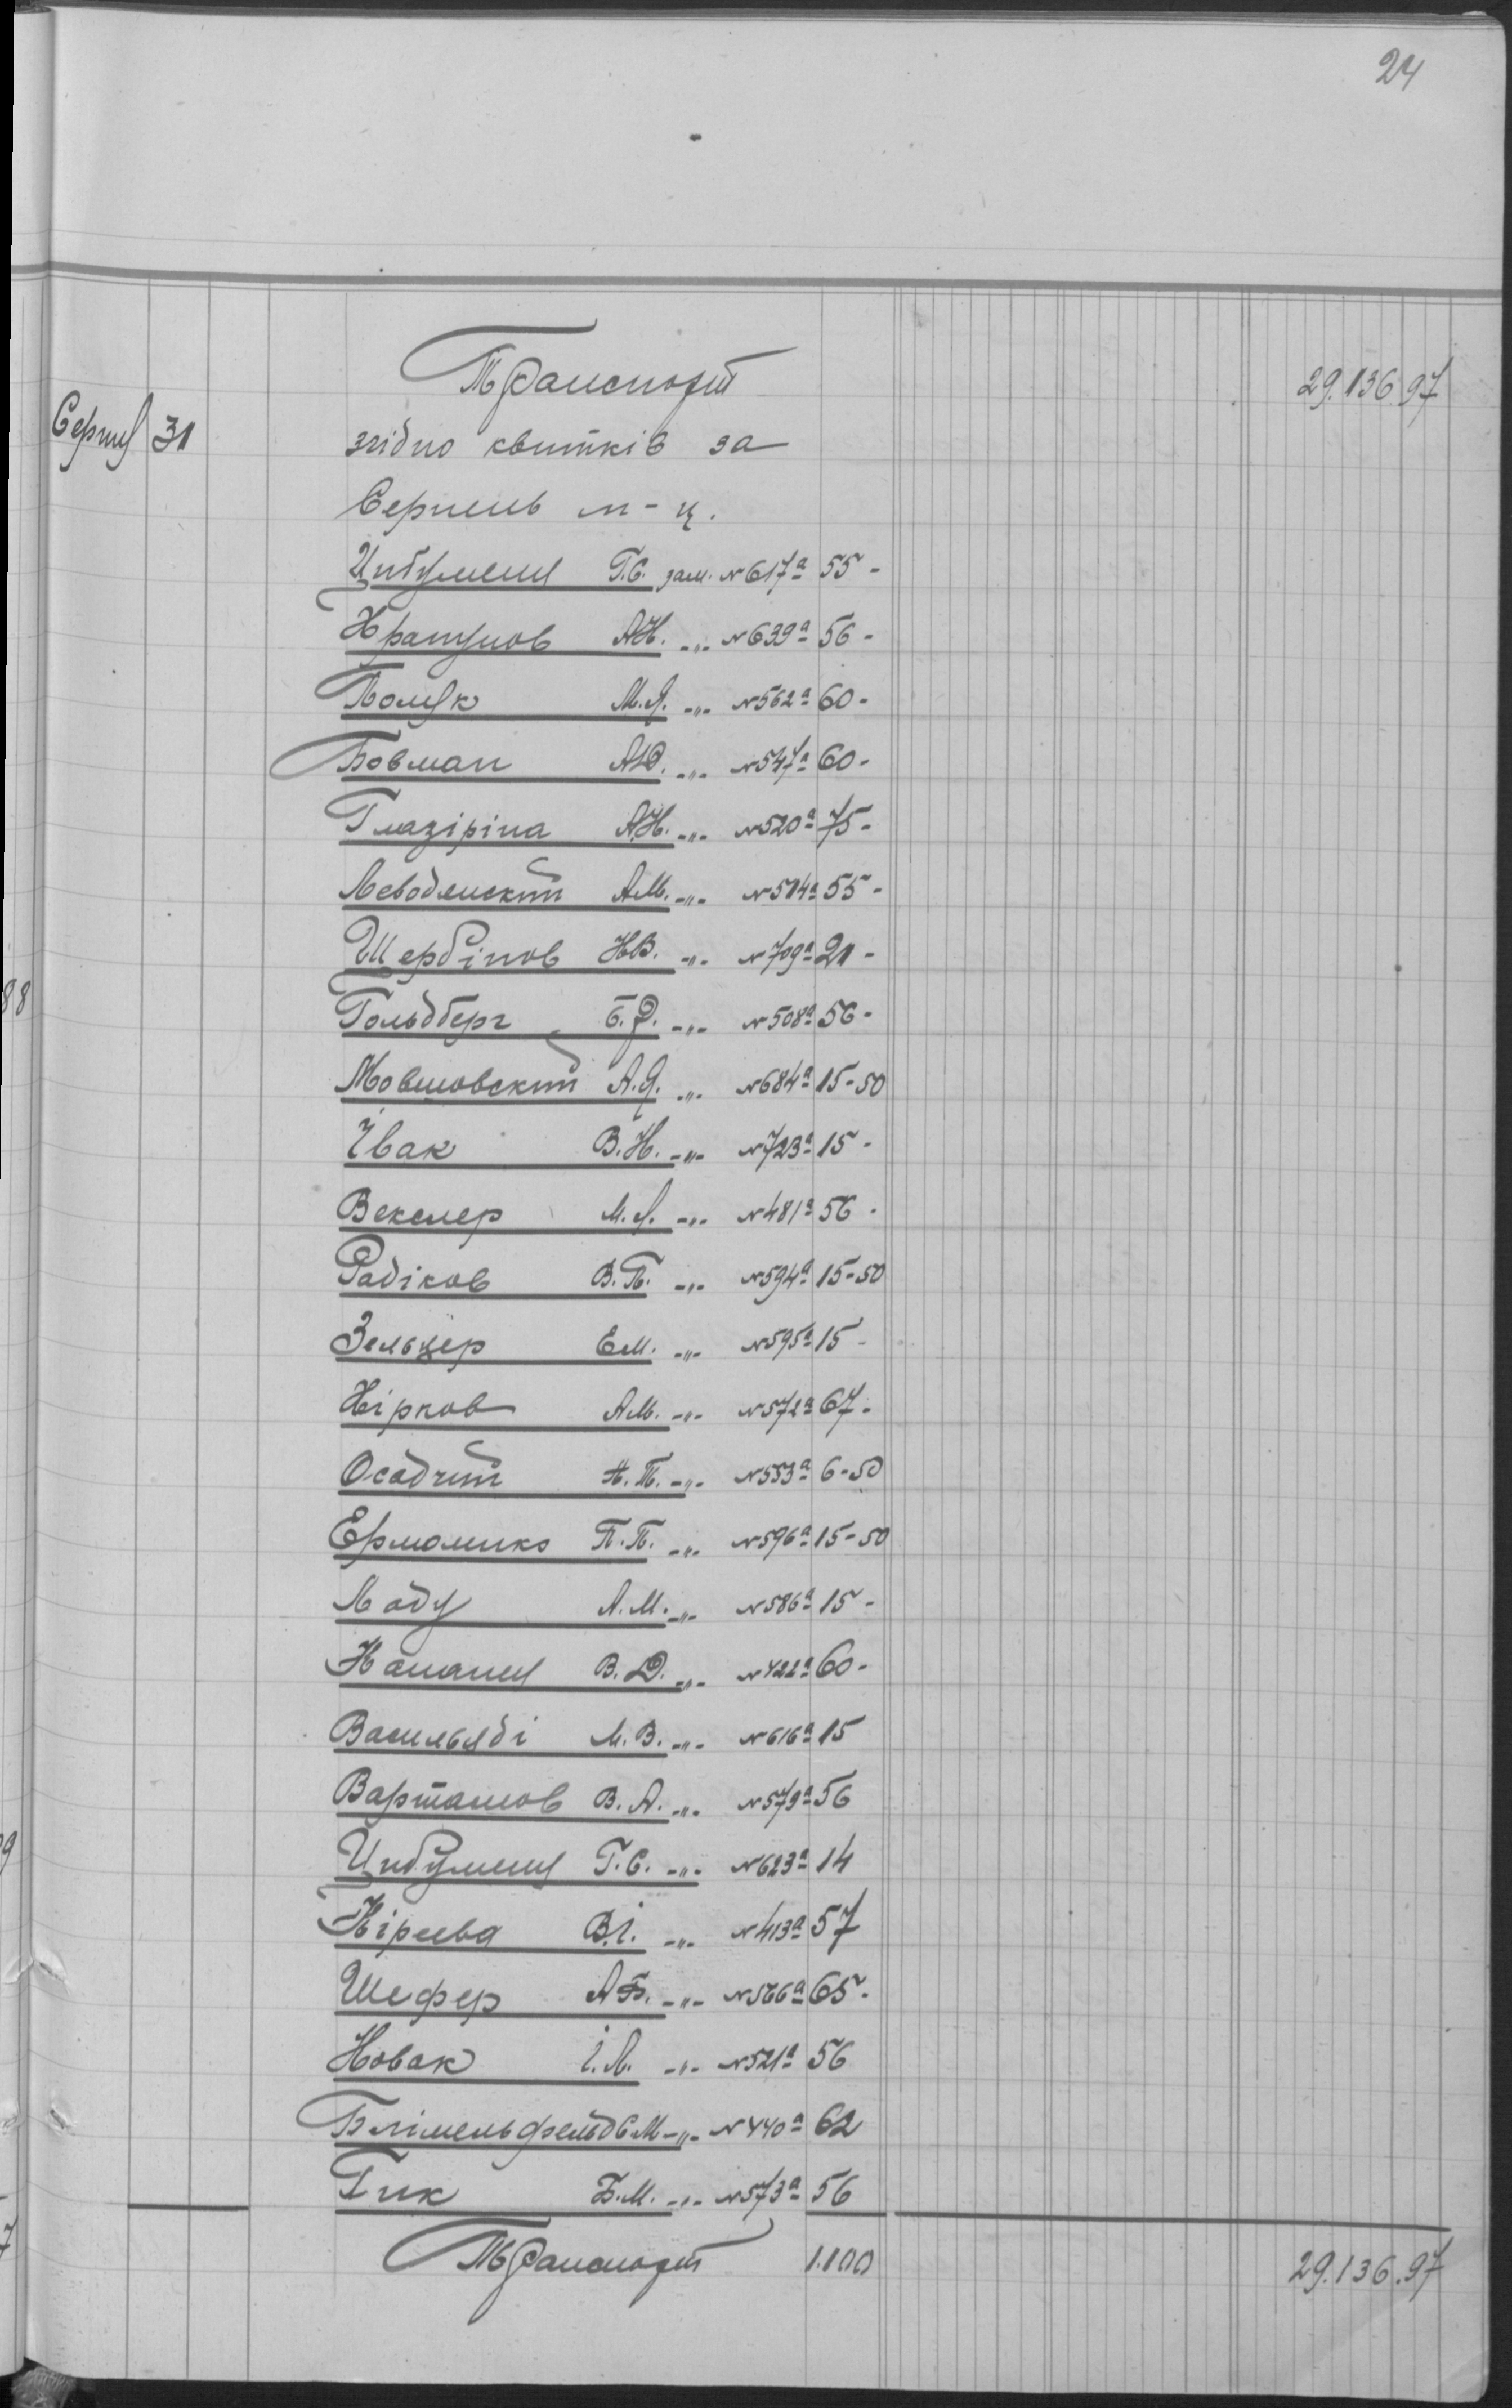 24
Транспорт 29.136.97
Серпня 31 згідно квитків за
Серпень м-ц.
Цибуленя Г.С. зам. №617а 55-
Крапунов А.К. -"- №639а 56-
Поляк М.Я. -"- №562а 60-
Бовман А.Ю. -"- №547а 60-
Глазіріна А.К. -"- №520а 75-
Леводянський А.М. -"- №514а 55-
Щербінов К.В. -"- №709а 21-
Гольдберг Б.Р. -"- №508а 56-
Мовшовський А.Я. -"- №684а 15-50
Івак В.К. -"- №723а 15-
Векслер М.Л. -"- №481а 56-
Радіков В.П. -"- №594а 15-50
Зельцер Е.М. -"- №595а 15-
Кірков А.М. -"- №572а 67-
Осадчий Т. -"- №553а 6-50
Ермоленко П.П. -"- №596а 15-50
Ладу А.М. -"- №586а 15-
В.Д. -"- №422а 60-
Васильяді М.В. -"- №616а 15
Вартанов В.А. -"- №579а 56
Цибуленя Г.С. -"- №623а 14
Кірєєва В.І. -"- №413а 57
Шефер А.Б. -"- №566а 65-
Новак І.Л. -"- №521а 56
С.М. -"- №440а 62
Гик Б.М. -"- №573а 56
Транспорт 1.100 29.136.97
88
9
7